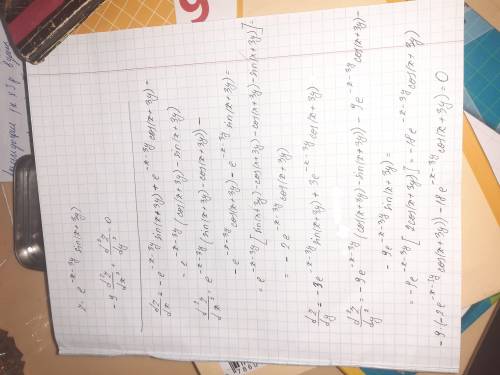 z = e^{-x-3y} sin(x+3y)
-9 d²z/dx² - d²z/dy² 0
dz/dx = -e^{-x-3y} sin(x+3y) + e^{-x-3y} cos(x+3y) =
= e^{-x-3y} (cos(x+3y) - sin(x+3y))
d²z/dx² = e^{-x-3y} (sin(x+3y) - cos(x+3y)) -
- e^{-x-3y} cos(x+3y) - e^{-x-3y} sin(x+3y) =
= e^{-x-3y} [sin(x+3y) - cos(x+3y) - cos(x+3y) - sin(x+3y)] =
= -2e^{-x-3y} cos(x+3y)
dz/dy = -3e^{-x-3y} sin(x+3y) + 3e^{-x-3y} cos(x+3y)
d²z/dy² = -9e^{-x-3y} (cos(x+3y) - sin(x+3y)) - 9e^{-x-3y} cos(x+3y) -
- 9e^{-x-3y} sin(x+3y) =
= -9e^{-x-3y} [2cos(x+3y)] = -18e^{-x-3y} cos(x+3y)
-9·(-2e^{-x-3y} cos(x+3y)) - 18e^{-x-3y} cos(x+3y) = 0